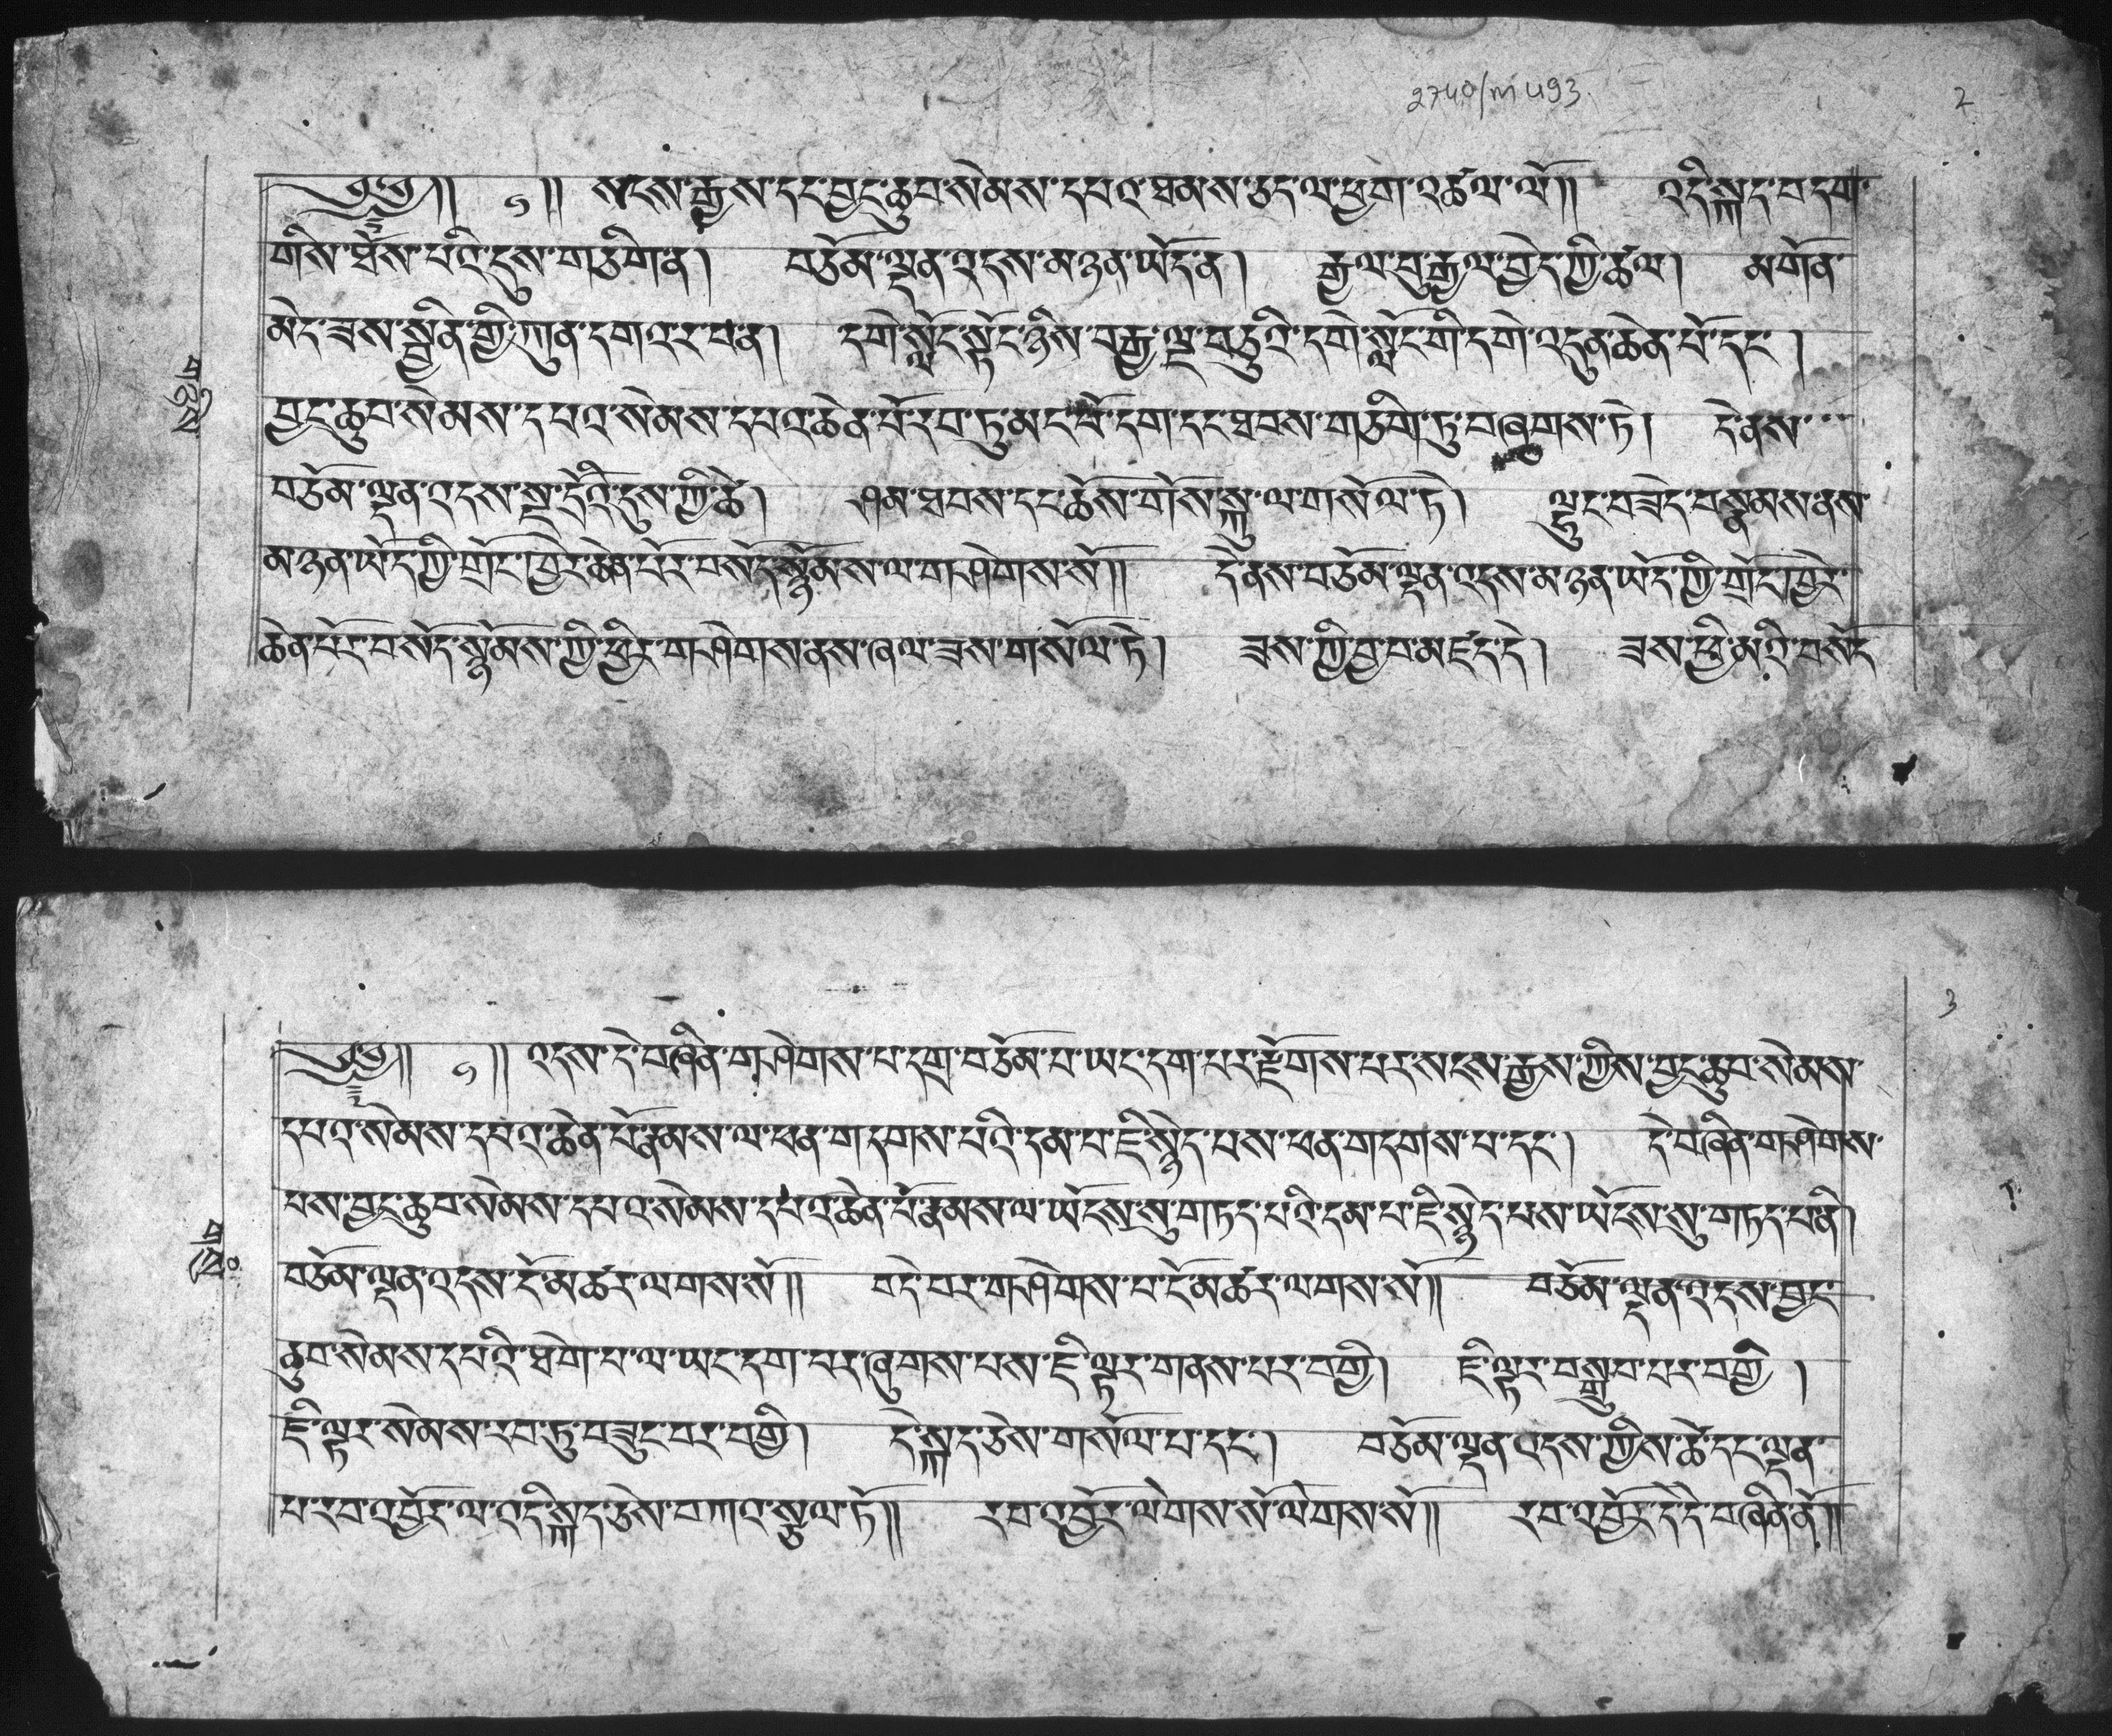 2740/m 493
2
༄༅།། ༑ །། སངས་རྒྱས་དང་བྱང་ཆུབ་སེམས་དཔའ་ཐམས་ཅད་ལ་ཕྱག་འཚལ་ལོ།། འདི་སྐད་བདག་
གིས་ཐོས་པའི་དུས་གཅིག་ན། བཅོམ་ལྡན་འདས་མཉན་ཡོད་ན། རྒྱལ་བུ་རྒྱལ་བྱེད་ཀྱི་ཚལ། མགོན་
མེད་ཟས་སྦྱིན་གྱི་ཀུན་དགའ་ར་བ་ན། དགེ་སློང་སྟོང་ཉིས་བརྒྱ་ལྔ་བཅུའི་དགེ་སློང་གི་དགེ་འདུན་ཆེན་པོ་དང་།
བྱང་ཆུབ་སེམས་དཔའ་སེམས་དཔའ་ཆེན་པོ་རབ་ཏུ་མང་པོ་དག་དང་ཐབས་གཅིག་ཏུ་བཞུགས་ཏེ། དེ་ནས་
བཅོམ་ལྡན་འདས་སྔ་དྲོའི་དུས་ཀྱི་ཚེ། ཤམ་ཐབས་དང་ཆོས་གོས་སྐུ་ལ་གསོལ་ཏེ། ལྷུང་བཟེད་བསྣམས་ནས་
མཉན་ཡོད་ཀྱི་གྲོང་ཁྱེར་ཆེན་པོར་བསོད་སྙོམས་ལ་གཤེགས་སོ།། དེ་ནས་བཅོམ་ལྡན་འདས་མཉན་ཡོད་ཀྱི་གྲོང་ཁྱེར་
ཆེན་པོར་བསོད་སྙོམས་ཀྱི་ཕྱིར་གཤེགས་ནས་ཞལ་ཟས་གསོལ་ཏེ། ཟས་ཀྱི་བྱ་བ་མཛད་དེ། ཟས་ཕྱི་མའི་བསོད
3
༄༅།། ༑ །། འདས་དེ་བཞིན་གཤེགས་པ་དགྲ་བཅོམ་པ་ཡང་དག་པར་རྫོགས་པར་སངས་རྒྱས་ཀྱིས་བྱང་ཆུབ་སེམས་
དཔའ་སེམས་དཔའ་ཆེན་པོ་རྣམས་ལ་ཕན་གདགས་པའི་དམ་པ་ཇི་སྙེད་པས་ཕན་གདགས་པ་དང་། དེ་བཞིན་གཤེགས་
པས་བྱང་ཆུབ་སེམས་དཔའ་སེམས་དཔའ་ཆེན་པོ་རྣམས་ལ་ཡོངས་སུ་གཏད་པའི་དམ་པ་ཇི་སྙེད་པས་ཡོངས་སུ་གཏད་པ་ནི།
བཅོམ་ལྡན་འདས་ངོ་མཚར་ལགས་སོ།། བདེ་བར་གཤེགས་པ་ངོ་མཚར་ལགས་སོ།། བཅོམ་ལྡན་འདས་བྱང་
ཆུབ་སེམས་དཔའི་ཐེག་པ་ལ་ཡང་དག་པར་ཞུགས་པས་ཇི་ལྟར་གནས་པར་བགྱི། ཇི་ལྟར་བསྒྲུབ་པར་བགྱི །
ཇི་ལྟར་སེམས་རབ་ཏུ་བཟུང་བར་བགྱི། དེ་སྐད་ཅེས་གསོལ་པ་དང་། བཅོམ་ལྡན་འདས་ཀྱིས་ཚེ་དང་ལྡན་
པ་རབ་འབྱོར་ལ་འདི་སྐད་ཅེས་བཀའ་སྩལ་ཏོ།། རབ་འབྱོར་ལེགས་སོ་ལེགས་སོ།། རབ་འབྱོར་དེ་དེ་བཞིན་ནོ།།